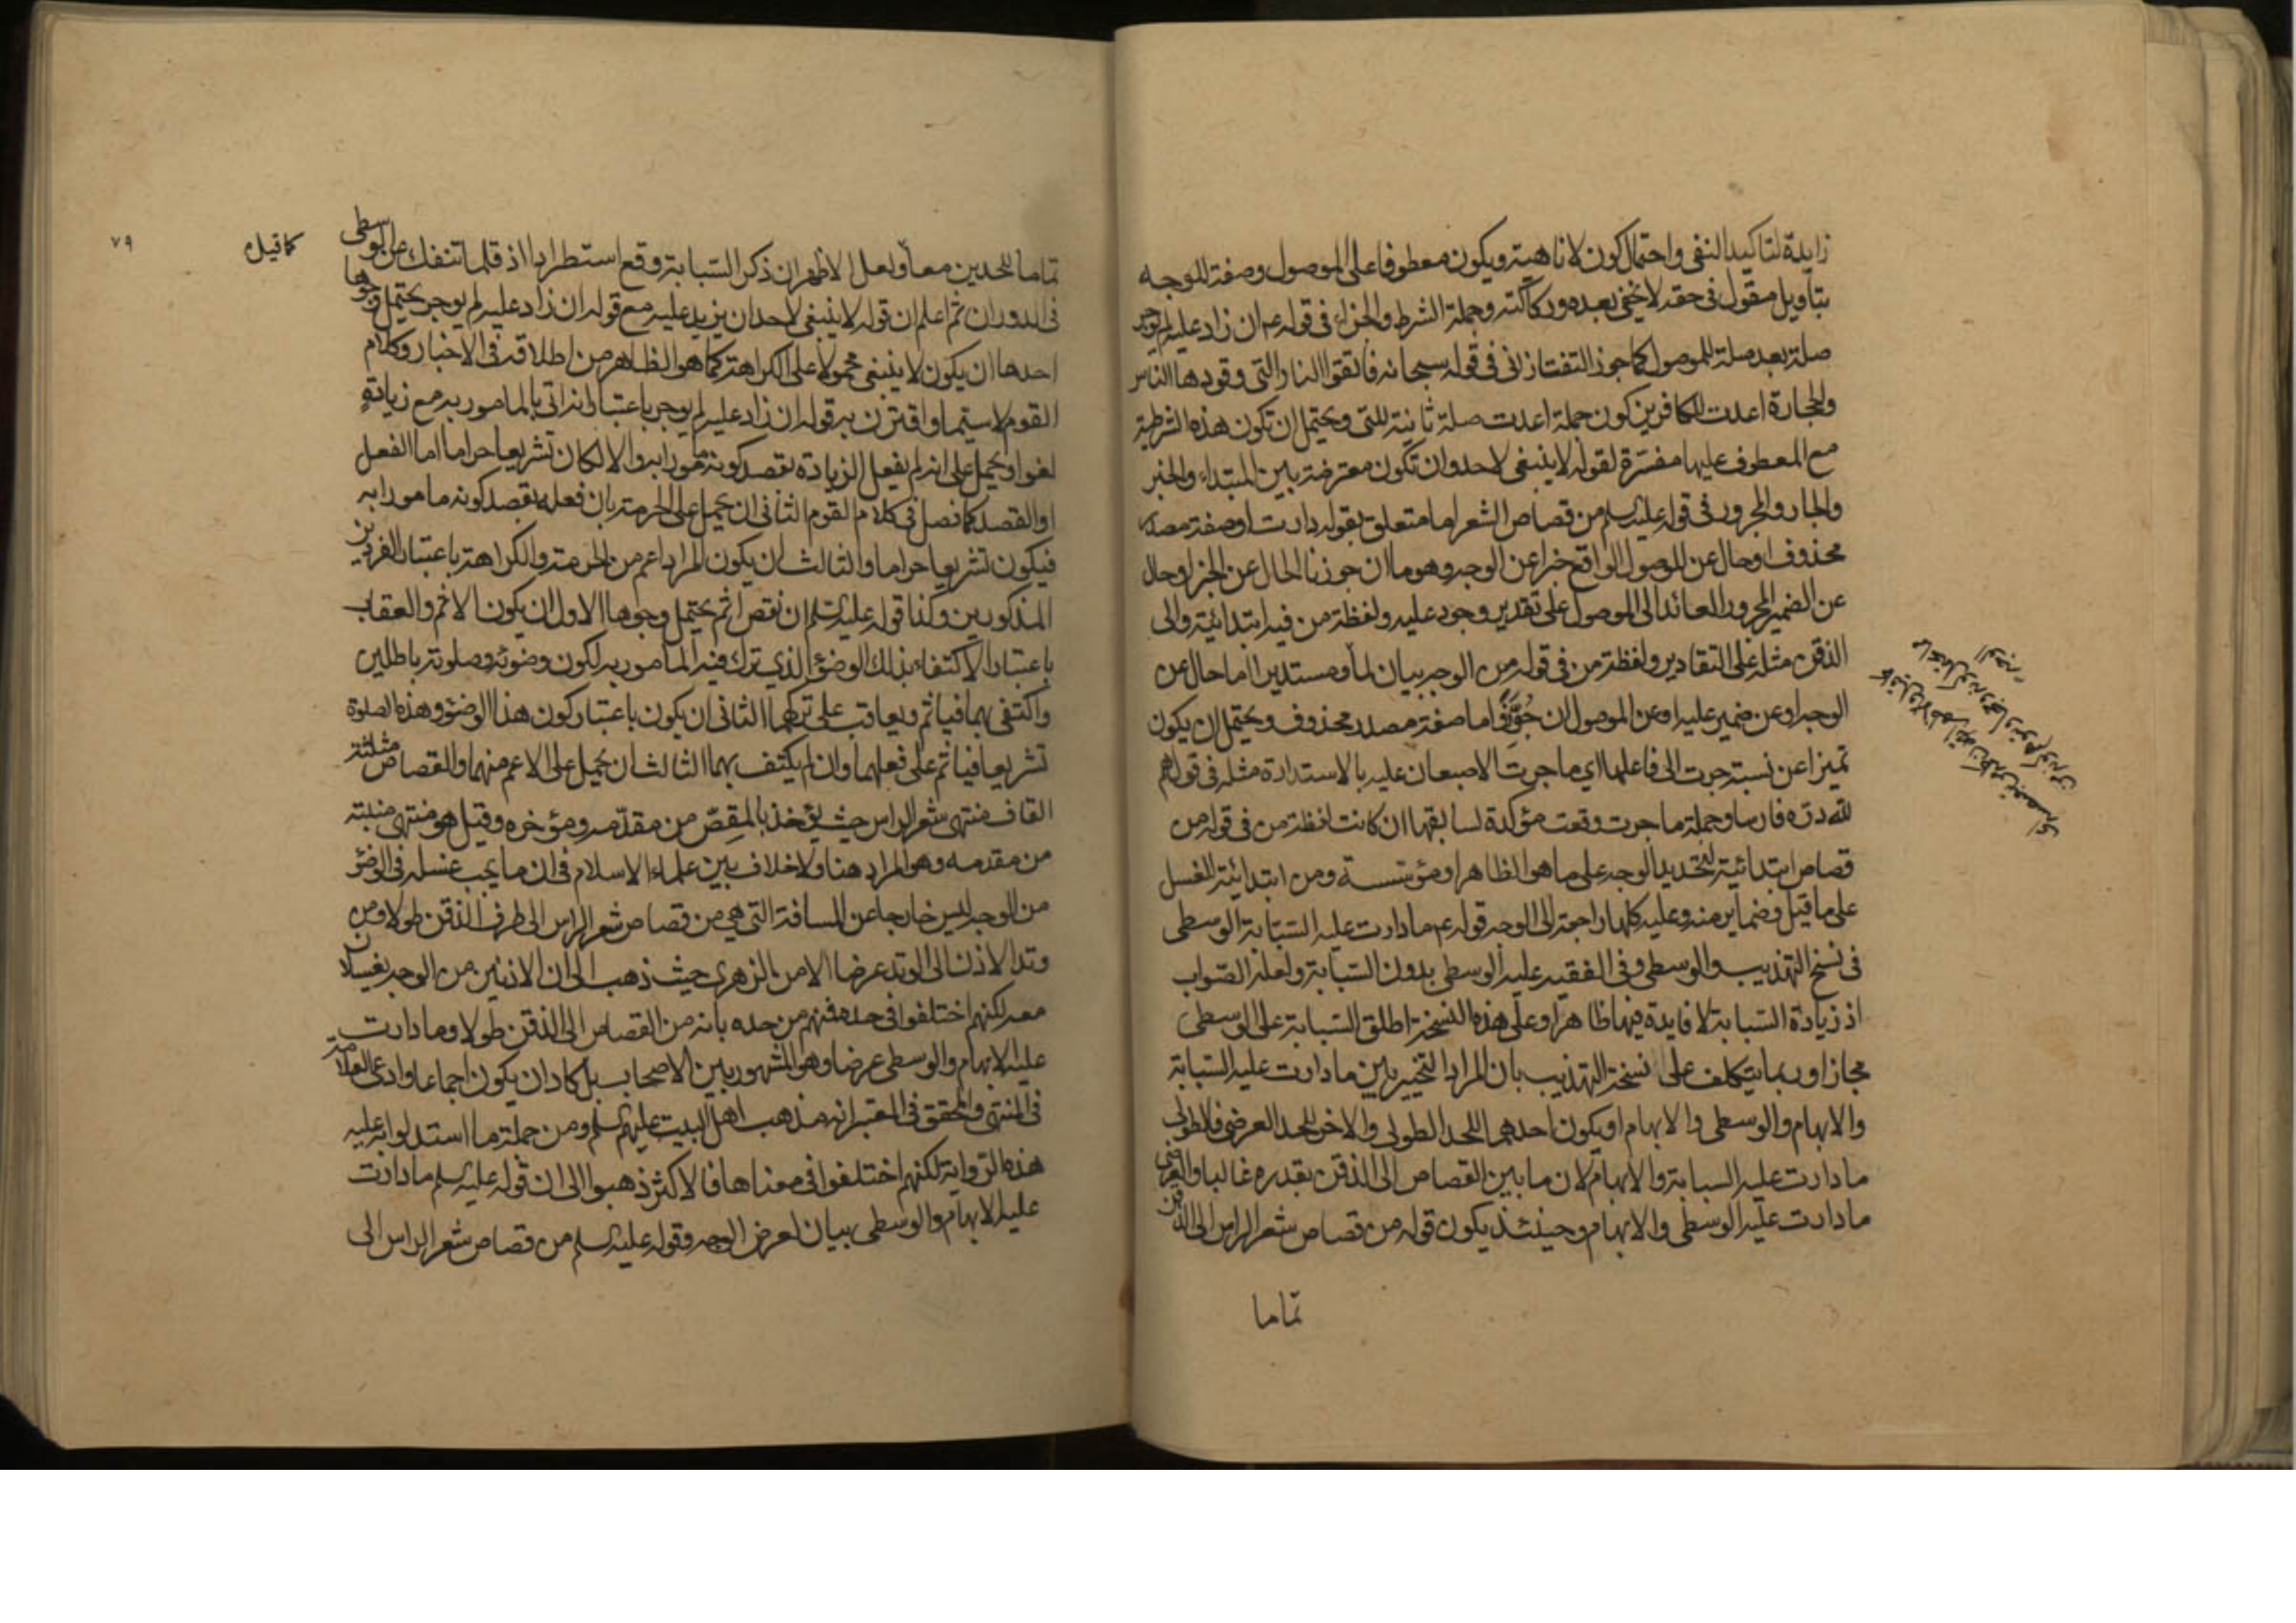 زايدة لتاكيد النفى واحتمال كون لا ناهية ويكون معطوفا على الموصول وصفة للوجه
بتاويل مقول فى حقه لا يخفى بعده وركاكته وجملة الشرط والجزاء فى قوله ع ان زاد عليه لم يوجر
صلة بعد صلة للموصول كما جوز التفتازانى فى قوله سبحانه فاتقوا النار التى وقودها الناس
والحجارة اعدت للكافرين كون جملة اعدت صلة ثانية للتى ويحتمل ان تكون هذه الشرطية
مع المعطوف عليها مفسرة لقوله لا ينبغى لاحد وان تكون معترضة بين المبتداء والخبر
والجار والمجرور فى قوله عليه السلم من قصاص الشعر اما متعلق بقوله دارت او صفة مصدر
محذوف او حال عن الموصول الواقع خبرا عن الوجه وهو ما ان جوزنا الحال عن الخبر او حال
عن الضمير المجرور العائد الى الموصول على تقدير وجود عليه ولفظة من فيه ابتدائية والى
الذقن مثله على التقادير ولفظة من فى قوله من الوجه بيان لما ومستديرا اما حال عن
الوجه او عن ضمير عليه او عن الموصول ان جُوِّزَ واما صفة مصدر محذوف ويحتمل ان يكون
تميزا عن نسبة جرت الى فاعلها اى ما جرت الاصبعان عليه بالاستدارة مثله فى قولهم
لله دره فارسا وجملة ما جرت وقعت مؤكدة لسابقها ان كانت لفظة من فى قوله من
قصاص ابتدائية لتحديد الوجه على ما هو الظاهر او مؤسسة ومن ابتدائية للغسل
على ما قيل وضماير منه وعليه كلها راجعة الى الوجه قوله ع ما دارت عليه السبابة الوسطى
فى نسخ التهذيب والوسطى وفى الفقيه عليه الوسطى بدون السبابة ولعله الصواب
اذ زيادة السبابة لا فايدة فيها ظاهرا وعلى هذه النسخة اطلق السبابة على الوسطى
مجازا وربما يتكلف على نسخة التهذيب بان المراد التخيير بين ما دارت عليه السبابة
والابهام والوسطى والابهام او يكون احدهما للحد الطولى والاخر للحد العرضى فالطولى
ما دارت عليه السبابة والابهام لان ما بين القصاص الى الذقن بقدره غالبا والعرضى
ما دارت عليه الوسطى والابهام وحينئذ يكون قوله من قصاص شعر الراس الى الذقن
تماما
كما قيل
٧٩
تماما للحدين معا ولعل الاظهر ان ذكر السبابة وقع استطرادا اذ قلما تنفك عن الوسطى
فى الدوران ثم اعلم ان قوله لا ينبغى لاحد ان يزيد عليه مع قوله ان زاد عليه لم يوجر يحتمل وجوها
احدها ان يكون لا ينبغى محمولا على الكراهة كما هو الظاهر من اطلاقه فى الاخبار وكلام
القوم لا سيما واقترن به قوله ان زاد عليه لم يوجر باعتبار انه اتى بالمامور به مع زيادةٍ
لغوا ويحمل على انه لم يفعل الزيادة بقصد كونه مامورا به والا لكان تشريعا حراما اما الفعل
او القصد كما فصل فى كلام القوم الثانى ان يحمل على الحرمة بان فعله بقصد كونه مامورا به
فيكون تشريعا حراما والثالث ان يكون المراد اعم من الحرمة والكراهة باعتبار الفردين
المذكورين وكذا قوله عليه السلم ان نقص اثم يحتمل وجوها الاول ان يكون الاثم والعقاب
باعتبار الاكتفاء بذلك الوضؤ الذى ترك فيه المامور به لكون وضوئه وصلوته باطلين
واكتفى بهما فياثم ويعاقب على تركهما الثانى ان يكون باعتبار كون هذا الوضؤ وهذه الصلوة
تشريعا فياثم على فعلهما وان لم يكتف بهما الثالث ان يحمل على الاعم منهما والقصاص مثلثة
القاف منتهى شعر الراس حيث يؤخذ بالمقص من مقدمه ومؤخره وقيل هو منتهى منبته
من مقدمه وهو المراد هنا ولا خلاف بين علماء الاسلام فى ان ما يجب غسله فى الوضؤ
من الوجه ليس خارجا عن المسافة التى هى من قصاص شعر الراس الى طرف الذقن طولا ومن
وتد الاذن الى الوتد عرضا الا من الزهرى حيث ذهب الى ان الاذنين من الوجه يغسلان
معه لكنهم اختلفوا فى حده فمنهم من حده بانه من القصاص الى الذقن طولا وما دارت
عليه الابهام والوسطى عرضا وهو المشهور بين الاصحاب بل كاد ان يكون اجماعا وادعى العلامة
فى المنتهى والمحقق فى المعتبر انه مذهب اهل البيت عليهم السلم ومن جملة ما استدلوا به عليه
هذه الرواية لكنهم اختلفوا فى معناها فالاكثر ذهبوا الى ان قوله عليه السلم ما دارت
عليه الابهام والوسطى بيان لعرض الوجه وقوله عليه السلم من قصاص شعر الراس الى